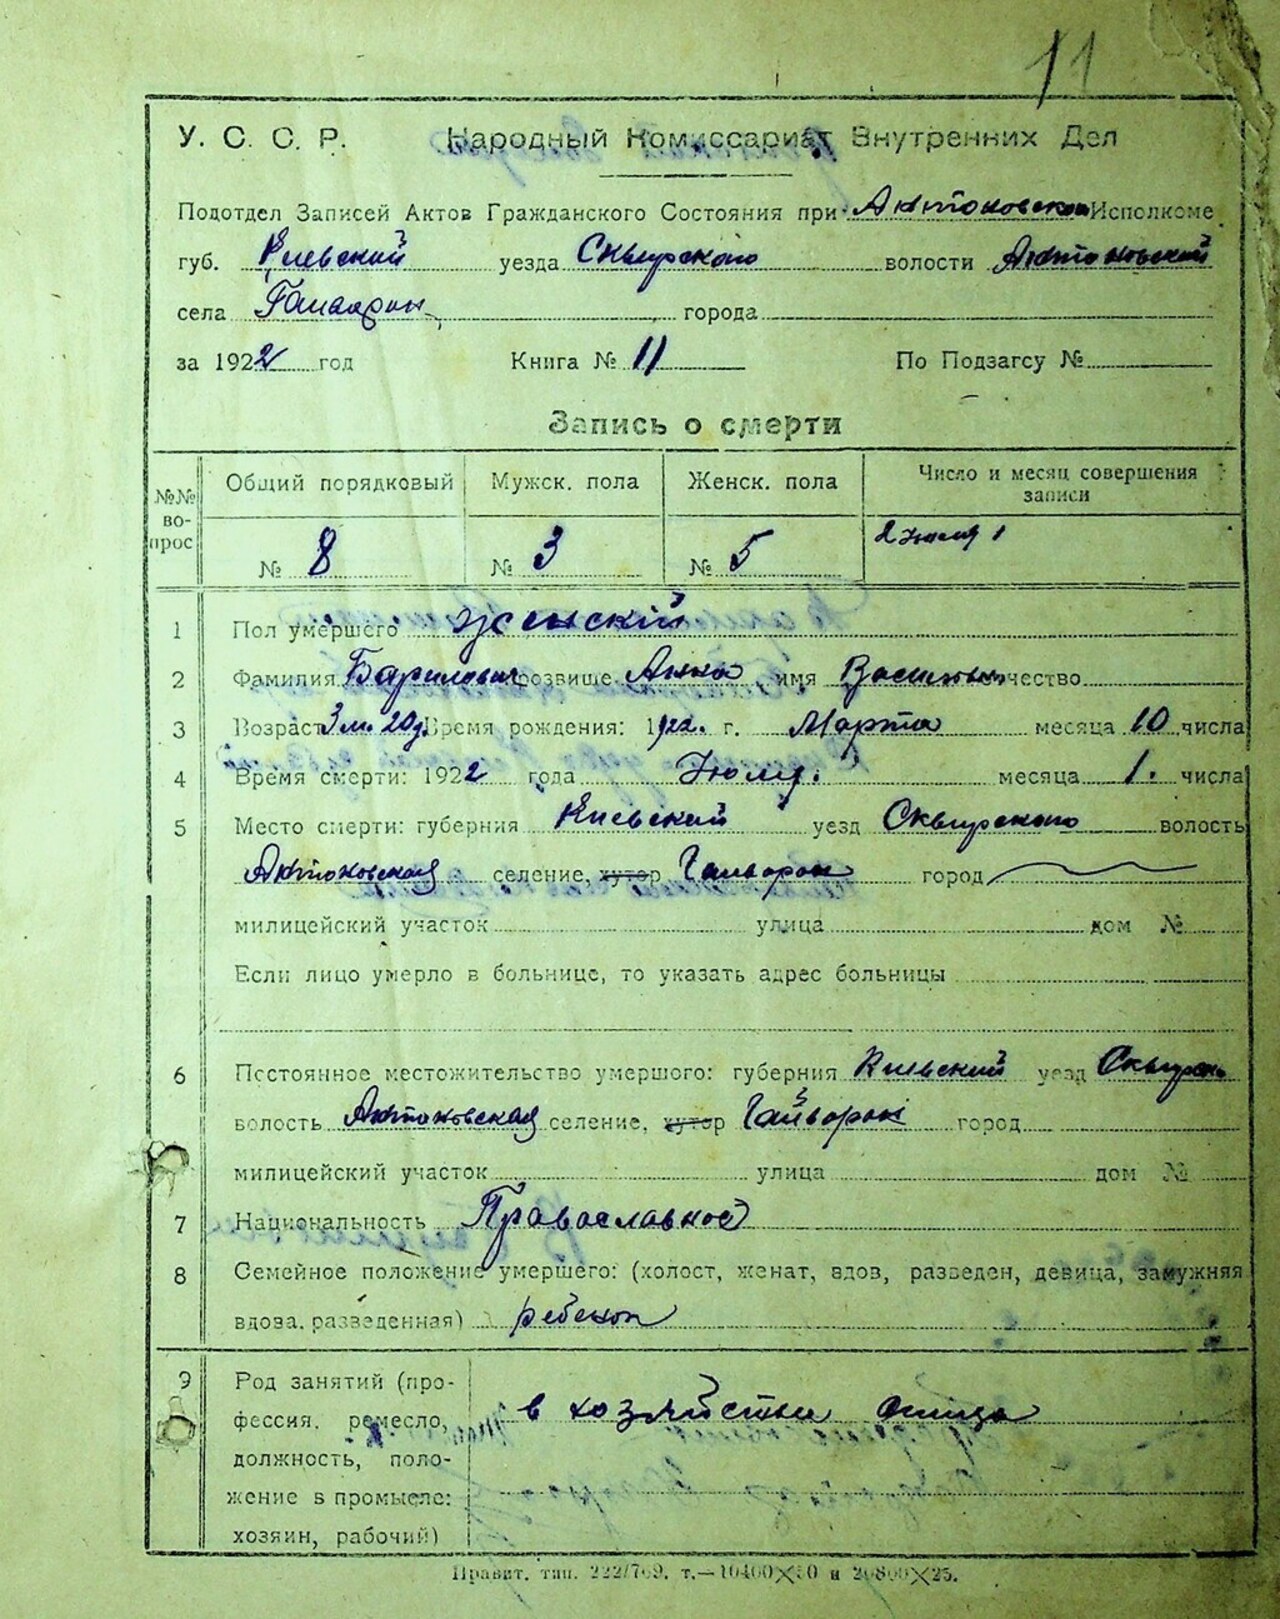 11
У. С. С. Р. Народный Комиссариат Внутренних Дел
Подотдел Записей Актов Гражданского Состояния при Антоновском Исполкоме
губ. Киевский уезда Сквирского волости Антоновский
села Гайворон города
за 1922 год Книга № 11 По Подзагсу №
Запись о смерти
№№ вопрос Общий порядковый Мужск. пола Женск. пола Число и месяц совершения записи
№ 8 № 3 № 5 2 Июля
1 Пол умершего женский
2 Фамилия прозвище Анна имя отчество
3 Возраст 3 м. 20 д. Время рождения: 1922. г. Марта месяца 10 числа
4 Время смерти: 1922 года Июля. месяца 1. числа
5 Место смерти: губерния Киевский уезд Сквирского волость
Антоновская селение, хутор Гайворон город
милицейский участок улица дом №
Если лицо умерло в больнице, то указать адрес больницы
6 Постоянное местожительство умершого: губерния Киевский уезд
волость Антоновская селение, хутор Гайворон город
милицейский участок улица дом №
7 Национальность Православное
8 Семейное положение умершего: (холост, женат, вдов, разведен, девица, замужняя
вдова, разведенная) ребенок
9 Род занятий (про-
фессия, ремесло, в хозяйстве отца
должность, поло-
жение в промысле:
хозяин, рабочий)
Правит. тип. 222/769. т.—10400×50 и 20800×25.